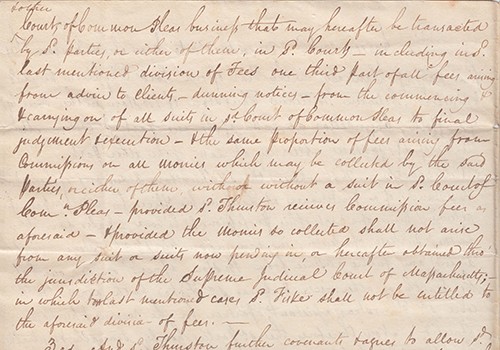 Court of Common Pleas business that may hereafter be transacted
by Sd. Parties, or either of them, in Sd. Court – including in sd.
last mentioned division of Fees one third part of all fees arising
from advice to Clients, – dunning notices – from the commencing &
& carrying on of all suits in sd. Court of Common Pleas to final
judgment & execution – & the same proportion of fees arising from
Commissions on all monies which may be collected by the said
Parties, or either of them with or without a suit in Sd. Court of
Com.n Pleas – provided Sd. Thurston recieves Commission fees as
aforesaid – & provided the monies so collected shall not arise
from any suit or suits now pending in, or hereafter obtained thro
the jurisdiction of the Supreme Judicial Court of Massachusetts;
in which two last mentioned cases Sd. Fiske shall not be entitled to
the aforesaid division of fees. —
And Sd. Thurston further covenants & agrees to allow Sd.